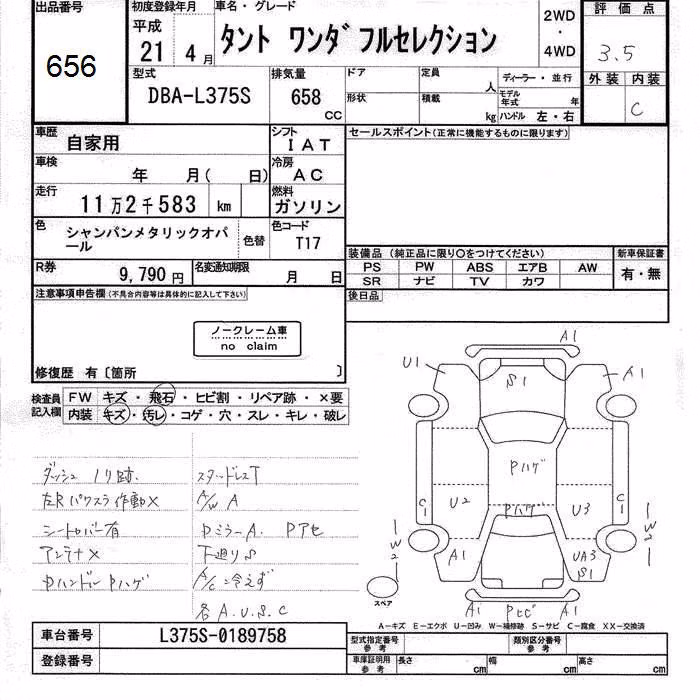 出品番号
656
初度登録年月
平成
21 4月
車名・グレード
タント ワンダフルセレクション
2WD
・
4WD
評価点
3.5
外装 内装
C
型式
DBA-L375S
排気量
658
CC
ドア
定員
人
形状
積載
kg
ディーラー・並行
モデル年式
年
ハンドル 左・右
車歴
自家用
シフト
IAT
車検
年 月( 日)
冷房
AC
走行
11万2千583 km
燃料
ガソリン
色
シャンパンメタリックオパール
色替
色コード
T17
R券
9,790円
名変通知期限
月 日
セールスポイント(正常に機能するものに限ります)
装備品 (純正品に限り○をつけてください)
PS PW ABS エアB AW
SR ナビ TV カワ
新車保証書
有・無
後日品
注意事項申告欄(不具合内容等は具体的に記入して下さい)
ノークレーム車
no claim
修復歴 有〔箇所 〕
検査員
記入欄
FW キズ・飛石・ヒビ割・リペア跡・×要
内装 キズ・汚レ・コゲ・穴・スレ・キレ・破レ
ダッシュ ノリ跡.
左Rパワスラ作動×
シートカバー有
アンテナ×
Pハンドル Pハゲ
スタッドレスT
A/W A
Pミラー A. Pアセ
下廻りS
A/C冷えず
各A.U.S.C
A1
U1
S1
A1
Pハゲ
C1
U2
Pハゲ
U3
C1
W2
W2
A1
UA3
S1
スペア
A1
Pヒビ
A1
A-キズ E-エクボ U-凹み W-補修跡 S-サビ C-腐食 XX-交換済
車台番号
L375S-0189758
登録番号
型式指定番号
参考
類別区分番号
参考
車庫証明用
参考
長さ
cm
幅
cm
高さ
cm